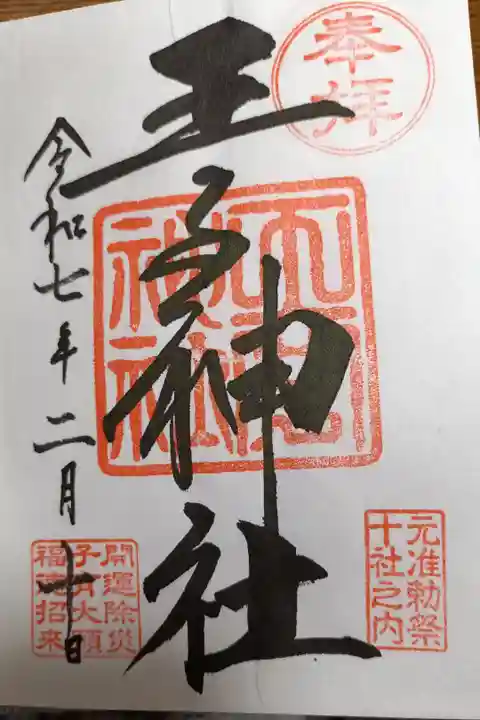 奉拝
王子神社
元准勅祭
十社之内
開運除災
子育大願
福徳招来
令和七年二月十日